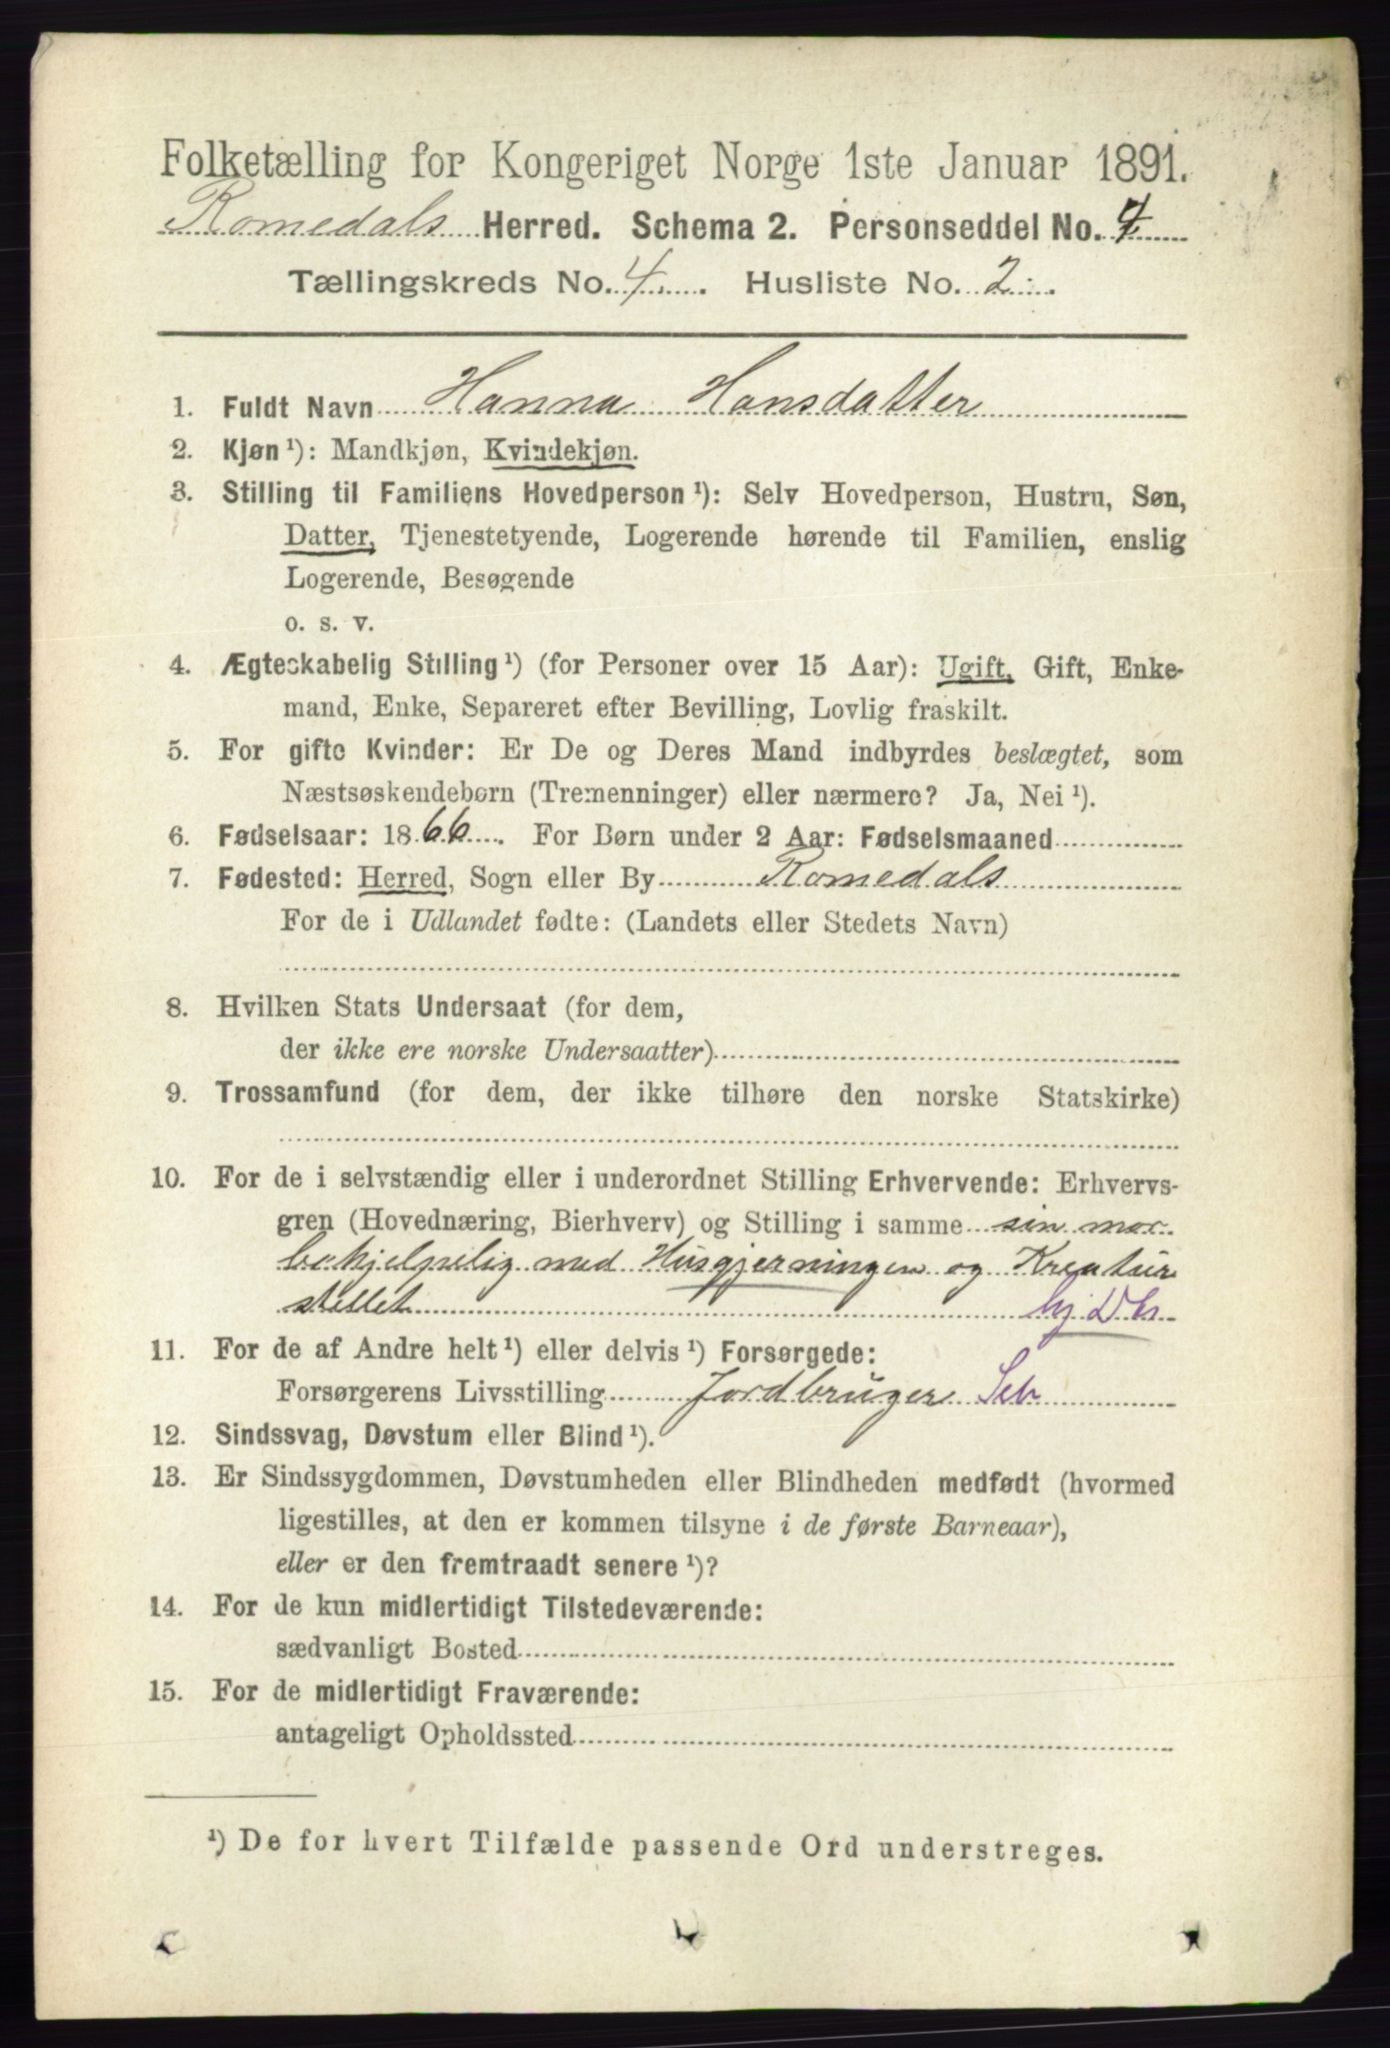 Folketælling for Kongeriget Norge 1ste Januar 1891.
Romedals Herred. Schema 2. Personseddel No. 4
Tællingskreds No. 4. Husliste No. 2.
1. Fuldt Navn Hanna Hansdatter
2. Kjøn ¹): Mandkjøn, Kvindekjøn.
3. Stilling til Familiens Hovedperson ¹): Selv Hovedperson, Hustru, Søn,
Datter, Tjenestetyende, Logerende hørende til Familien, enslig
Logerende, Besøgende
o. s. v.
4. Ægteskabelig Stilling ¹) (for Personer over 15 Aar): Ugift, Gift, Enke-
mand, Enke, Separeret efter Bevilling, Lovlig fraskilt.
5. For gifte Kvinder: Er De og Deres Mand indbyrdes beslægtet, som
Næstsøskendebørn (Tremenninger) eller nærmere? Ja, Nei ¹).
6. Fødselsaar: 1866. For Børn under 2 Aar: Fødselsmaaned
7. Fødested: Herred, Sogn eller By Romedals
For de i Udlandet fødte: (Landets eller Stedets Navn)
8. Hvilken Stats Undersaat (for dem,
der ikke ere norske Undersaatter)
9. Trossamfund (for dem, der ikke tilhøre den norske Statskirke)
10. For de i selvstændig eller i underordnet Stilling Erhvervende: Erhvervs-
gren (Hovednæring, Bierhverv) og Stilling i samme sin mor
behjelpelig med Husgjerningen og Kreatur
stellet hj. Dtr
11. For de af Andre helt ¹) eller delvis ¹) Forsørgede:
Forsørgerens Livsstilling Jordbruger Selv
12. Sindssvag, Døvstum eller Blind ¹).
13. Er Sindssygdommen, Døvstumheden eller Blindheden medfødt (hvormed
ligestilles, at den er kommen tilsyne i de første Barneaar),
eller er den fremtraadt senere ¹)?
14. For de kun midlertidigt Tilstedeværende:
sædvanligt Bosted
15. For de midlertidigt Fraværende:
antageligt Opholdssted
¹) De for hvert Tilfælde passende Ord understreges.